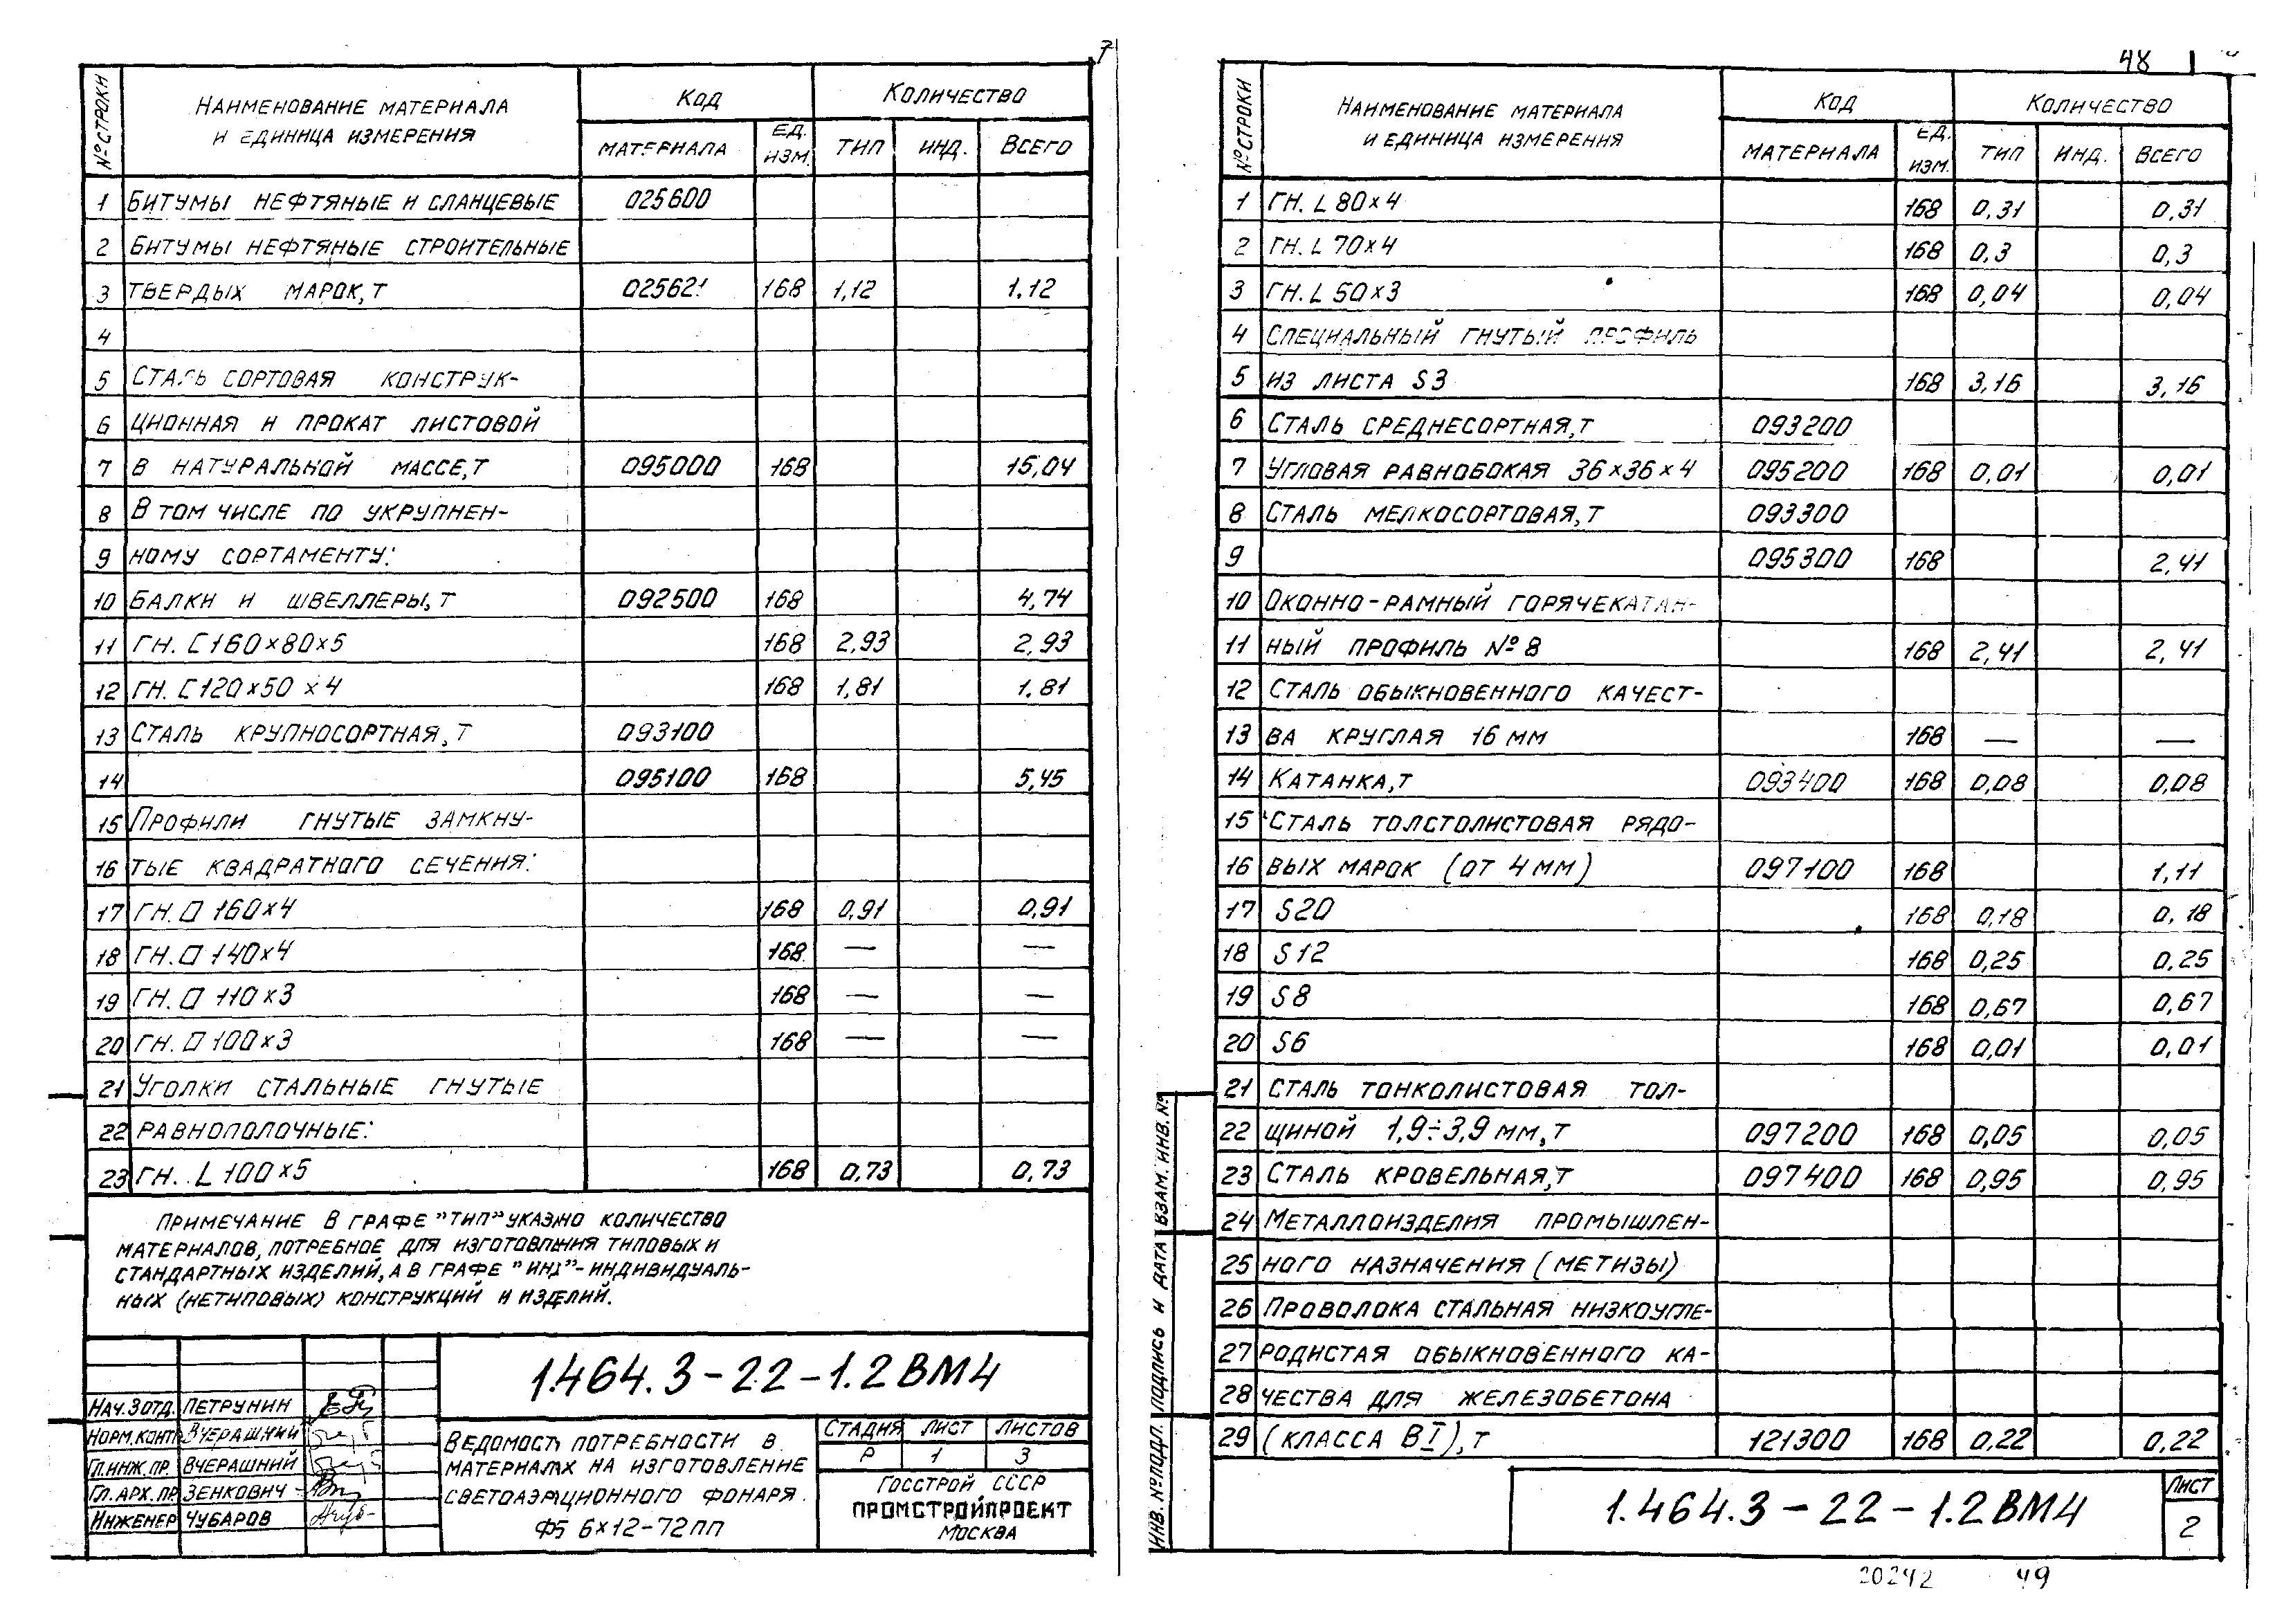 7
№ СТРОКИ
НАИМЕНОВАНИЕ МАТЕРИАЛА
И ЕДИНИЦА ИЗМЕРЕНИЯ
КОД
КОЛИЧЕСТВО
МАТЕРИАЛА
ЕД.
ИЗМ.
ТИП
ИНД.
ВСЕГО
1 БИТУМЫ НЕФТЯНЫЕ И СЛАНЦЕВЫЕ 025600
2 БИТУМЫ НЕФТЯНЫЕ СТРОИТЕЛЬНЫЕ
3 ТВЕРДЫХ МАРОК, Т 025621 168 1,12 1,12
4
5 СТАЛЬ СОРТОВАЯ КОНСТРУК-
6 ЦИОННАЯ И ПРОКАТ ЛИСТОВОЙ
7 В НАТУРАЛЬНОЙ МАССЕ, Т 095000 168 15,04
8 В ТОМ ЧИСЛЕ ПО УКРУПНЕН-
9 НОМУ СОРТАМЕНТУ:
10 БАЛКИ И ШВЕЛЛЕРЫ, Т 092500 168 4,74
11 ГН. [ 160×80×5 168 2,93 2,93
12 ГН. [ 120×50×4 168 1,81 1,81
13 СТАЛЬ КРУПНОСОРТНАЯ, Т 093100
14 095100 168 5,45
15 ПРОФИЛИ ГНУТЫЕ ЗАМКНУ-
16 ТЫЕ КВАДРАТНОГО СЕЧЕНИЯ:
17 ГН. □ 160×4 168 0,91 0,91
18 ГН. □ 140×4 168 — —
19 ГН. □ 110×3 168 — —
20 ГН. □ 100×3 168 — —
21 УГОЛКИ СТАЛЬНЫЕ ГНУТЫЕ
22 РАВНОПОЛОЧНЫЕ:
23 ГН. L 100×5 168 0,73 0,73
ПРИМЕЧАНИЕ В ГРАФЕ "ТИП" УКАЗАНО КОЛИЧЕСТВО
МАТЕРИАЛОВ, ПОТРЕБНОЕ ДЛЯ ИЗГОТОВЛЕНИЯ ТИПОВЫХ И
СТАНДАРТНЫХ ИЗДЕЛИЙ, А В ГРАФЕ "ИНД"-ИНДИВИДУАЛЬ-
НЫХ (НЕТИПОВЫХ) КОНСТРУКЦИЙ И ИЗДЕЛИЙ.
НАЧ.ЗОТД. ПЕТРУНИН
НОРМ.КОНТР ВЧЕРАШНИЙ
ГЛ.ИНЖ.ПР. ВЧЕРАШНИЙ
ГЛ.АРХ.ПР ЗЕНКОВИЧ
ИНЖЕНЕР ЧУБАРОВ
1.464.3-22-1.2ВМ4
ВЕДОМОСТЬ ПОТРЕБНОСТИ В
МАТЕРИАЛАХ НА ИЗГОТОВЛЕНИЕ
СВЕТОАЭРАЦИОННОГО ФОНАРЯ
Ф5 6×12-72ПП
СТАДИЯ ЛИСТ ЛИСТОВ
Р 1 3
ГОССТРОЙ СССР
ПРОМСТРОЙПРОЕКТ
МОСКВА
48
№ СТРОКИ
НАИМЕНОВАНИЕ МАТЕРИАЛА
И ЕДИНИЦА ИЗМЕРЕНИЯ
КОД
КОЛИЧЕСТВО
МАТЕРИАЛА
ЕД.
ИЗМ.
ТИП
ИНД.
ВСЕГО
1 ГН. L 80×4 168 0,31 0,31
2 ГН. L 70×4 168 0,3 0,3
3 ГН. L 50×3 168 0,04 0,04
4 СПЕЦИАЛЬНЫЙ ГНУТЫЙ ПРОФИЛЬ
5 ИЗ ЛИСТА S3 168 3,16 3,16
6 СТАЛЬ СРЕДНЕСОРТНАЯ, Т 093200
7 УГЛОВАЯ РАВНОБОКАЯ 36×36×4 095200 168 0,01 0,01
8 СТАЛЬ МЕЛКОСОРТОВАЯ, Т 093300
9 095300 168 2,41
10 ОКОННО-РАМНЫЙ ГОРЯЧЕКАТАН-
11 НЫЙ ПРОФИЛЬ №8 168 2,41 2,41
12 СТАЛЬ ОБЫКНОВЕННОГО КАЧЕСТ-
13 ВА КРУГЛАЯ 16 ММ 168 — —
14 КАТАНКА, Т 093400 168 0,08 0,08
15 СТАЛЬ ТОЛСТОЛИСТОВАЯ РЯДО-
16 ВЫХ МАРОК (ОТ 4 ММ) 097100 168 1,11
17 S20 168 0,18 0,18
18 S12 168 0,25 0,25
19 S8 168 0,67 0,67
20 S6 168 0,01 0,01
21 СТАЛЬ ТОНКОЛИСТОВАЯ ТОЛ-
22 ЩИНОЙ 1,9÷3,9 ММ, Т 097200 168 0,05 0,05
23 СТАЛЬ КРОВЕЛЬНАЯ, Т 097400 168 0,95 0,95
24 МЕТАЛЛОИЗДЕЛИЯ ПРОМЫШЛЕН-
25 НОГО НАЗНАЧЕНИЯ (МЕТИЗЫ)
26 ПРОВОЛОКА СТАЛЬНАЯ НИЗКОУГЛЕ-
27 РОДИСТАЯ ОБЫКНОВЕННОГО КА-
28 ЧЕСТВА ДЛЯ ЖЕЛЕЗОБЕТОНА
29 (КЛАССА ВI), Т 121300 168 0,22 0,22
ИНВ. № ПОДЛ. ПОДПИСЬ И ДАТА ВЗАМ. ИНВ. №
1.464.3-22-1.2ВМ4
ЛИСТ
2
20242 49